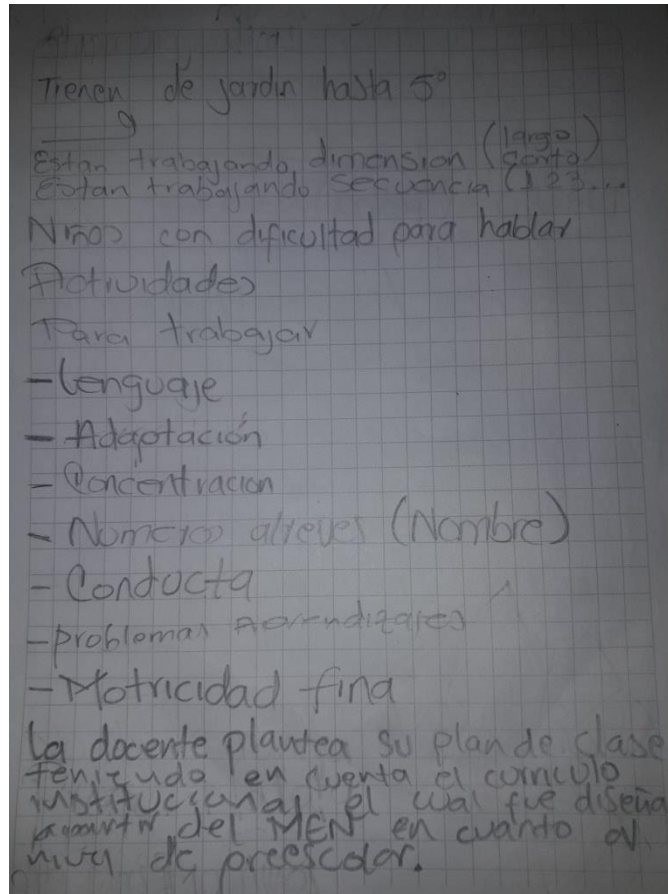 Tienen de jardin hasta 5°
9
Estan trabajando dimension (largo corto)
Estan trabajando secuencia (1 2 3...
Niños con dificultad para hablar
Actividades
Para trabajar
- Lenguaje
- Adaptación
- Concentracion
- Numeros alreves (Nombre)
- Conducta
- problemas Aprendizajes
- Motricidad fina
la docente plantea su plan de clase
teniendo en cuenta el curriculo
institucional el cual fue diseña
apartir del MEN en cuanto al
nivel de preescolar.